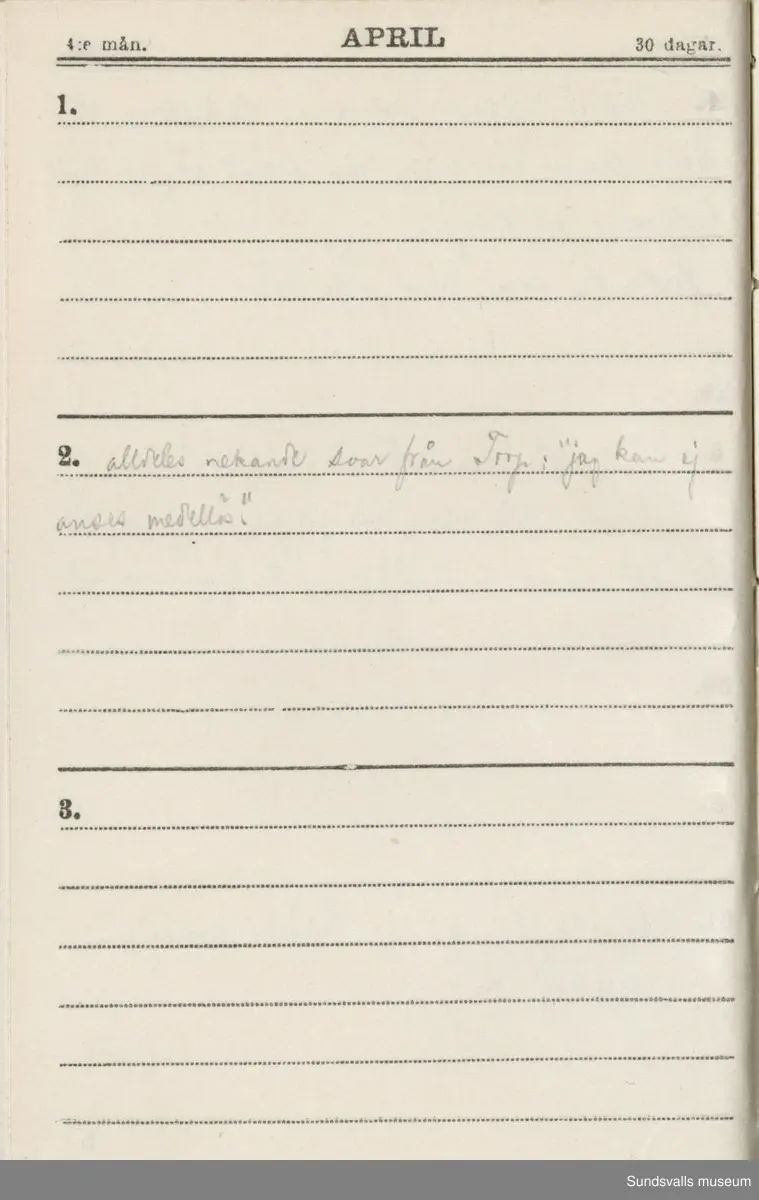 4:e mån.
APRIL
30 dagar.
1.
2. alldeles nekande svar från Torp: "jag kan ej
anses medellös."
3.
Sundsvalls museum